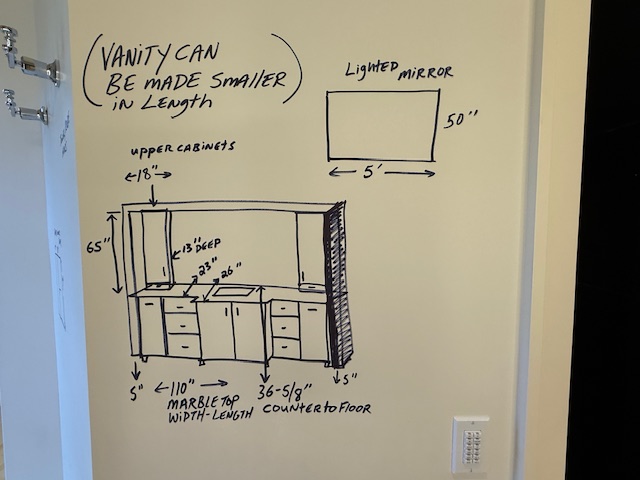 (VANITY CAN
BE MADE SMALLER
in Length)
Lighted MIRROR
50"
← 5' →
upper CABINETS
←18"→
65"
13" DEEP
23"
26"
5"
←110"→
MARBLE TOP
WIDTH-LENGTH
36-5/8"
COUNTER to FLOOR
5"